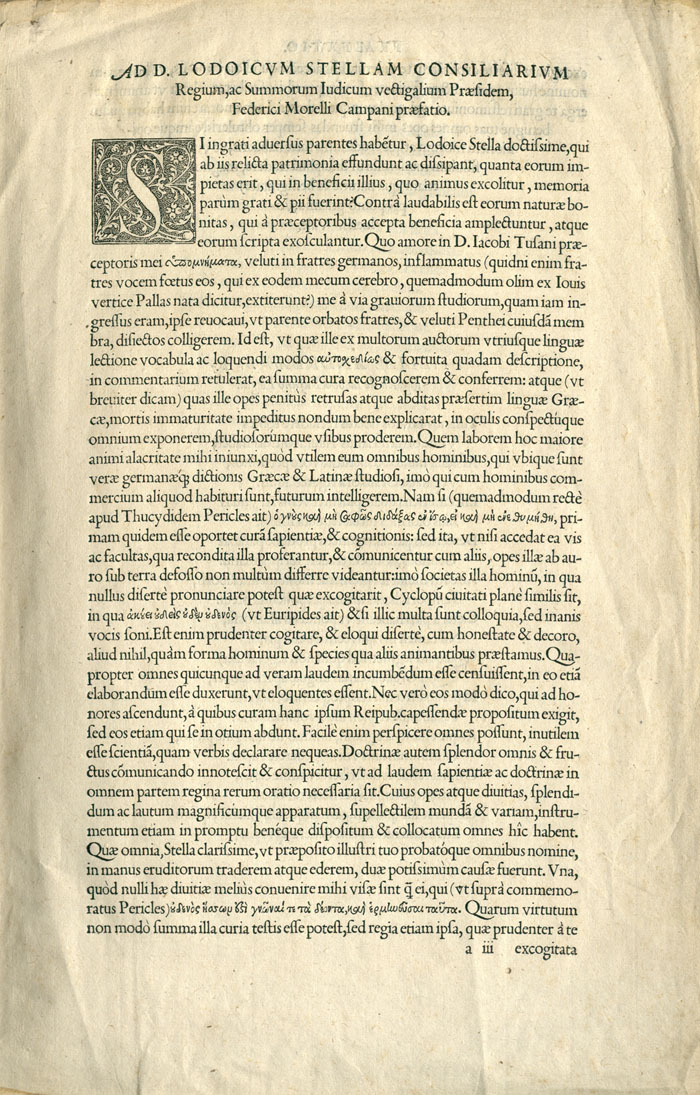 AD D. LODOICVM STELLAM CONSILIARIVM
Regium, ac Summorum Iudicum vectigalium Præsidem,
Federici Morelli Campani præfatio.
SI ingrati aduersus parentes habētur, Lodoice Stella doctissime, qui
ab iis relicta patrimonia effundunt ac dissipant, quanta eorum im-
pietas erit, qui in beneficii illius, quo animus excolitur, memoria
parùm grati & pii fuerint? Contrà laudabilis est eorum naturæ bo-
nitas, qui à præceptoribus accepta beneficia amplectuntur, atque
eorum scripta exosculantur. Quo amore in D. Iacobi Tusani præ-
ceptoris mei ὑπομνήματα, veluti in fratres germanos, inflammatus (quidni enim fra-
tres vocem fœtus eos, qui ex eodem mecum cerebro, quemadmodum olim ex Iouis
vertice Pallas nata dicitur, extiterunt?) me à via grauiorum studiorum, quam iam in-
gressus eram, ipse reuocaui, vt parente orbatos fratres, & veluti Penthei cuiusdā mem
bra, disiectos colligerem. Id est, vt quæ ille ex multorum auctorum vtriusque linguæ
lectione vocabula ac loquendi modos αὐτοχεδίας & fortuita quadam descriptione,
in commentarium retulerat, ea summa cura recognoscerem & conferrem: atque (vt
breuiter dicam) quas ille opes penitùs retrusas atque abditas præsertim linguæ Græ-
cæ, mortis immaturitate impeditus nondum bene explicarat, in oculis conspectúque
omnium exponerem, studiosorúmque vsibus proderem. Quem laborem hoc maiore
animi alacritate mihi iniunxi, quòd vtilem eum omnibus hominibus, qui vbique sunt
veræ germanæq́; dictionis Græcæ & Latinæ studiosi, imò qui cum hominibus com-
mercium aliquod habituri sunt, futurum intelligerem. Nam si (quemadmodum rectè
apud Thucydidem Pericles ait) ὁ γνοὺς καὶ μὴ σαφῶς διδάξας ἐν ἴσῳ, εἰ καὶ μὴ ἐνεθυμήθη, pri-
mam quidem esse oportet curā sapientiæ, & cognitionis: sed ita, vt nisi accedat ea vis
ac facultas, qua recondita illa proferantur, & cōmunicentur cum aliis, opes illæ ab au-
ro sub terra defosso non multùm differre videantur: imò societas illa hominū, in qua
nullus disertè pronunciare potest quæ excogitarit, Cyclopū ciuitati planè similis sit,
in qua ἀκούει οὐδεὶς οὐδὲν οὐδενὸς (vt Euripides ait) & si illic multa sunt colloquia, sed inanis
vocis soni. Est enim prudenter cogitare, & eloqui disertè, cum honestate & decoro,
aliud nihil, quàm forma hominum & species qua aliis animantibus præstamus. Qua-
propter omnes quicunque ad veram laudem incumbēdum esse censuissent, in eo etiā
elaborandum esse duxerunt, vt eloquentes essent. Nec verò eos modò dico, qui ad ho-
nores ascendunt, à quibus curam hanc ipsum Reipub. capessendæ propositum exigit,
sed eos etiam qui se in otium abdunt. Facilè enim perspicere omnes possunt, inutilem
esse scientiā, quam verbis declarare nequeas. Doctrinæ autem splendor omnis & fru-
ctus cōmunicando innotescit & conspicitur, vt ad laudem sapientiæ ac doctrinæ in
omnem partem regina rerum oratio necessaria sit. Cuius opes atque diuitias, splendi-
dum ac lautum magnificumque apparatum, supellectilem mundā & variam, instru-
mentum etiam in promptu benéque dispositum & collocatum omnes hîc habent.
Quæ omnia, Stella clarissime, vt præposito illustri tuo probatóque omnibus nomine,
in manus eruditorum traderem atque ederem, duæ potissimùm causæ fuerunt. Vna,
quòd nulli hæ diuitiæ meliùs conuenire mihi visæ sint q̄̃ ei, qui (vt suprà commemo-
ratus Pericles) οὐδενὸς ἥσσων οἴει γνῶναί τε τὰ δέοντα, καὶ ἑρμηνεῦσαι ταῦτα. Quarum virtutum
non modò summa illa curia testis esse potest, sed regia etiam ipsa, quæ prudenter à te
a iii excogitata